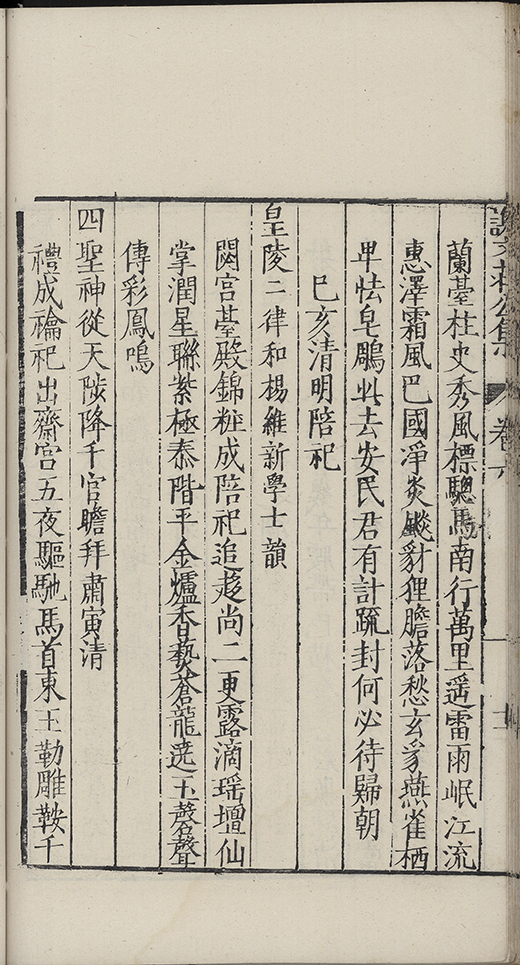 謝文莊公集 卷六
蘭臺柱史秀風標驄馬南行萬里遥雷雨岷江流
惠澤霜風巴國淨炎歊豺狸膽落愁玄豸燕雀栖
卑怯皂鵰此去安民君有計疏封何必待歸朝
巳亥清明陪祀
皇陵二律和楊維新學士韻
閟宫臺殿錦粧成陪祀追趍尚二更露滴瑶壇仙
掌潤星聯紫極泰階平金爐香爇蒼龍遶玉磬聲
傳彩鳳鳴
四聖神從天陟降千官瞻拜肅寅清
禮成禴祀出齋宫五夜驅馳馬首東玉勒雕鞍千